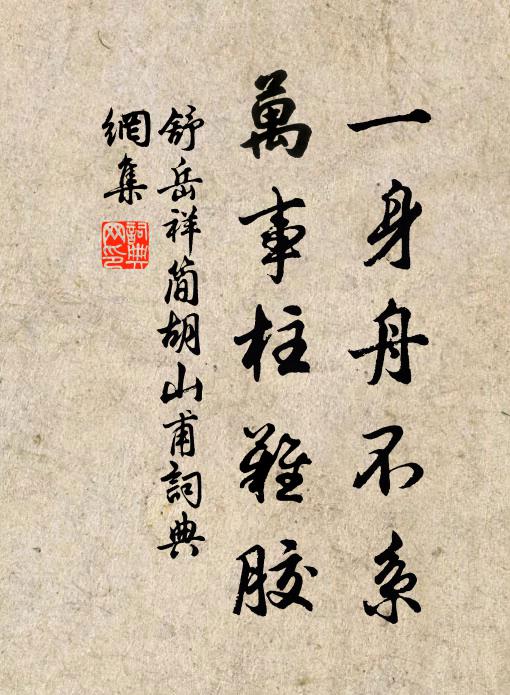 一身舟不系
萬事柱難膠
舒岳祥簡胡山甫詞典
網集
詞典
网印